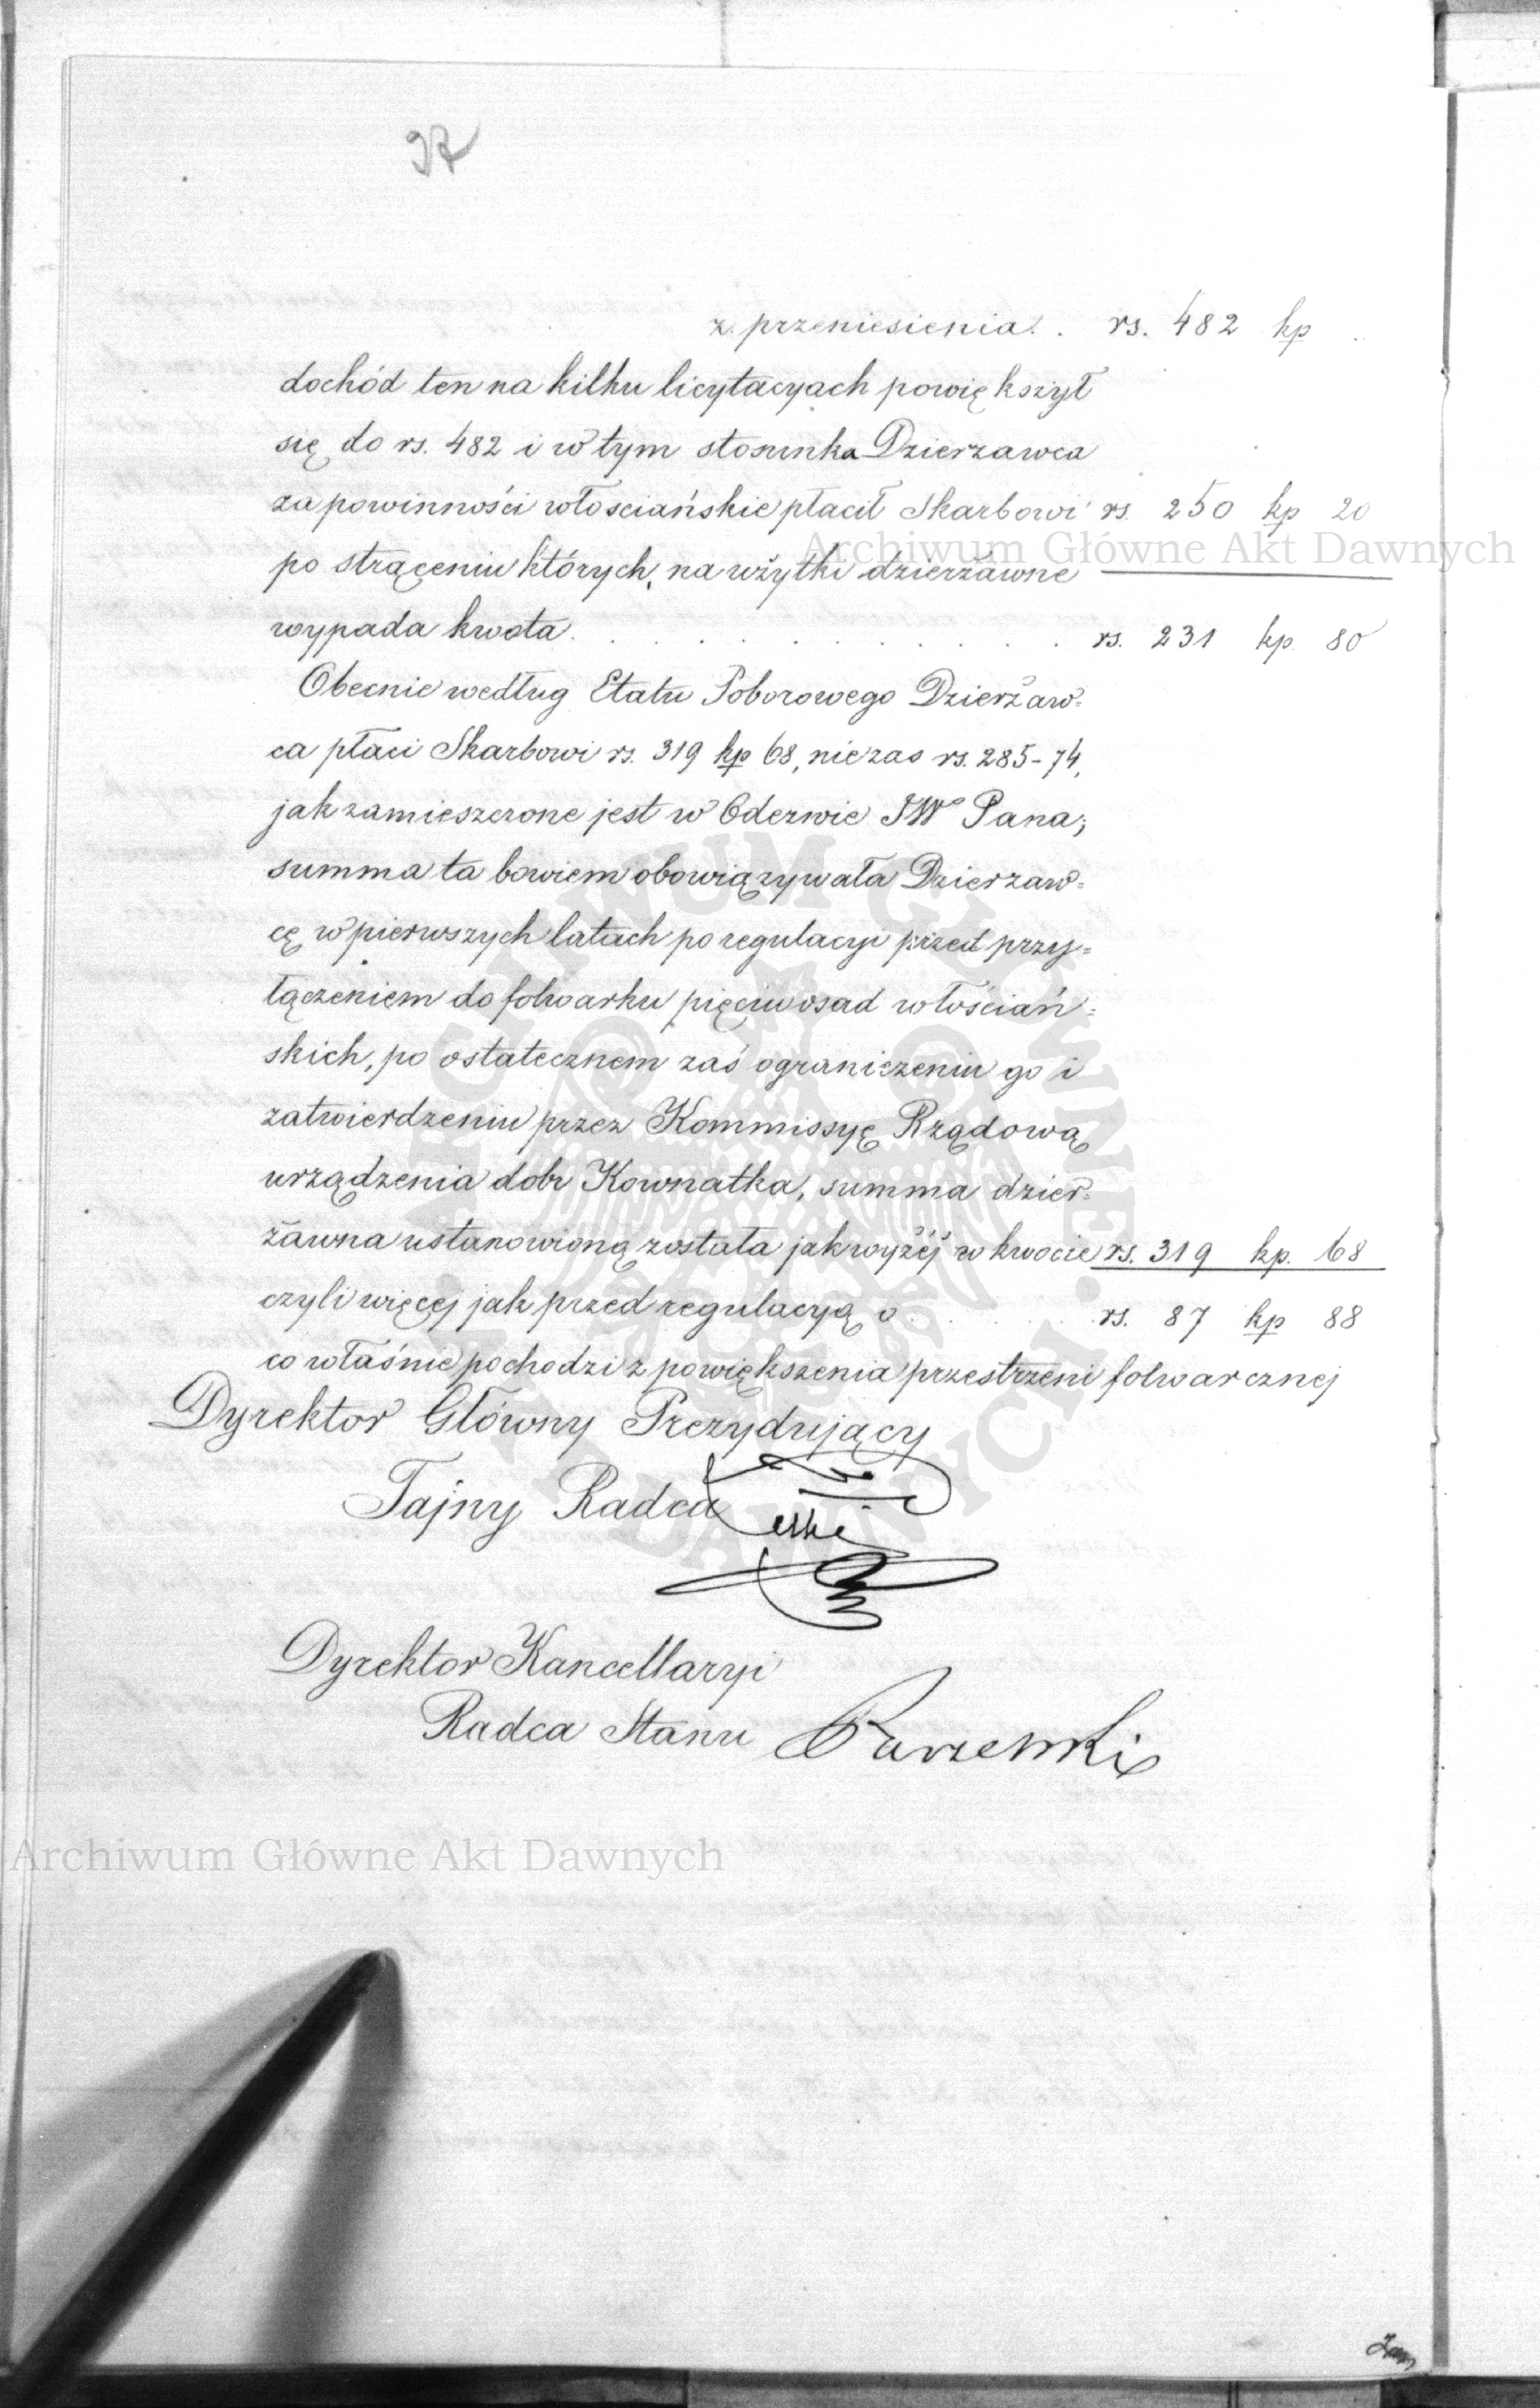 97
z przeniesienia . . rs. 482 kp .
dochód ten na kilku licytacyach powiększył
się do rs. 482 i w tym stosunku Dzierzawca
za powinności włosciańskie płacił Skarbowi rs. 250 kp 20
Archiwum Główne Akt Dawnych
po strąceniu których, na użytki dzierżawne
wypada kwota . . . . . . . . . . . rs. 231 kp. 80
Obecnie według Etatu Poborowego Dzierżaw=
ca płaci Skarbowi rs. 319 kp 68, nie zas rs. 285-74,
jak zamieszczone jest w Odezwie JWo Pana;
summa ta bowiem obowiązywała Dzierzaw=
cę w pierwszych latach po regulacyi przed przy=
łączeniem do folwarku pięciu osad włościań=
skich, po ostatecznem zaś ograniczeniu go i
zatwierdzeniu przez Kommissyę Rządową
urządzenia dobr Kownatka, summa dzier=
żawna ustanowioną została jak wyżéj w kwocie rs. 319 kp. 68
czyli więcej jak przed regulacyą o . . . . . rs. 87 kp 88
co właśnie pochodzi z powiększenia przestrzeni folwarcznej
Dyrektor Główny Prezydujący
Tajny Radca
Dyrektor Kancellaryi
Radca Stanu
Archiwum Główne Akt Dawnych
ARCHIWUM GŁÓWNE AKT DAWNYCH